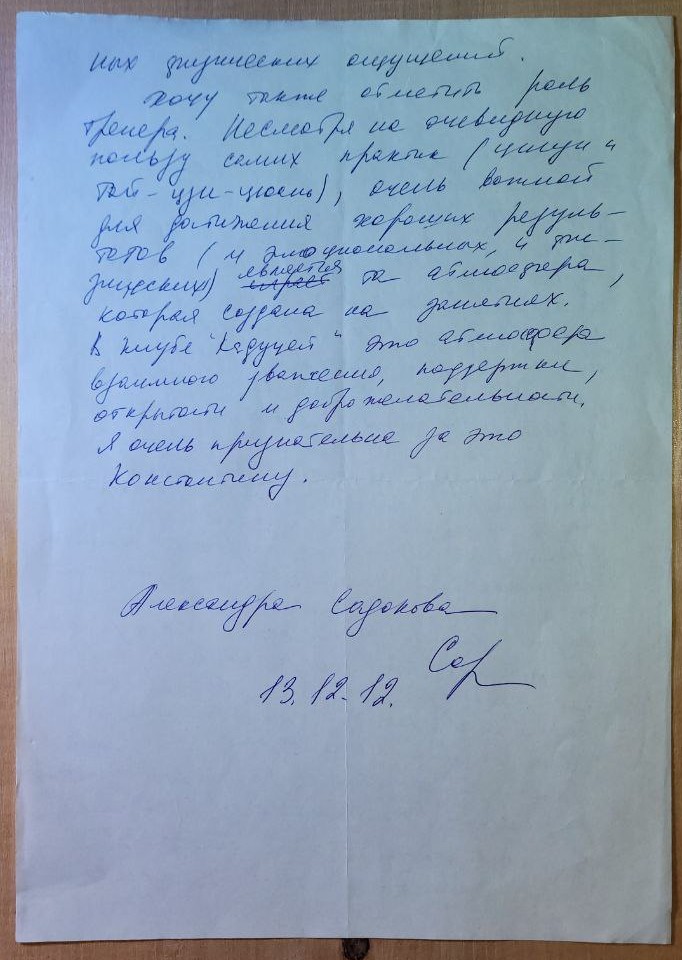 ных физических ощущений.
Хочу также отметить роль
тренера. Несмотря на очевидную
пользу самих практик (цигун и
тай-цзи-цюань), очень важной
для достижения хороших резуль-
татов (и эмоциональных, и фи-
зических) является та атмосфера,
которая создана на занятиях.
В клубе "Кедуцей" это атмосфера
взаимного уважения, поддержки,
открытости и доброжелательности.
Я очень признательна за это
Константину.
Александра Садокова
13.12.12.